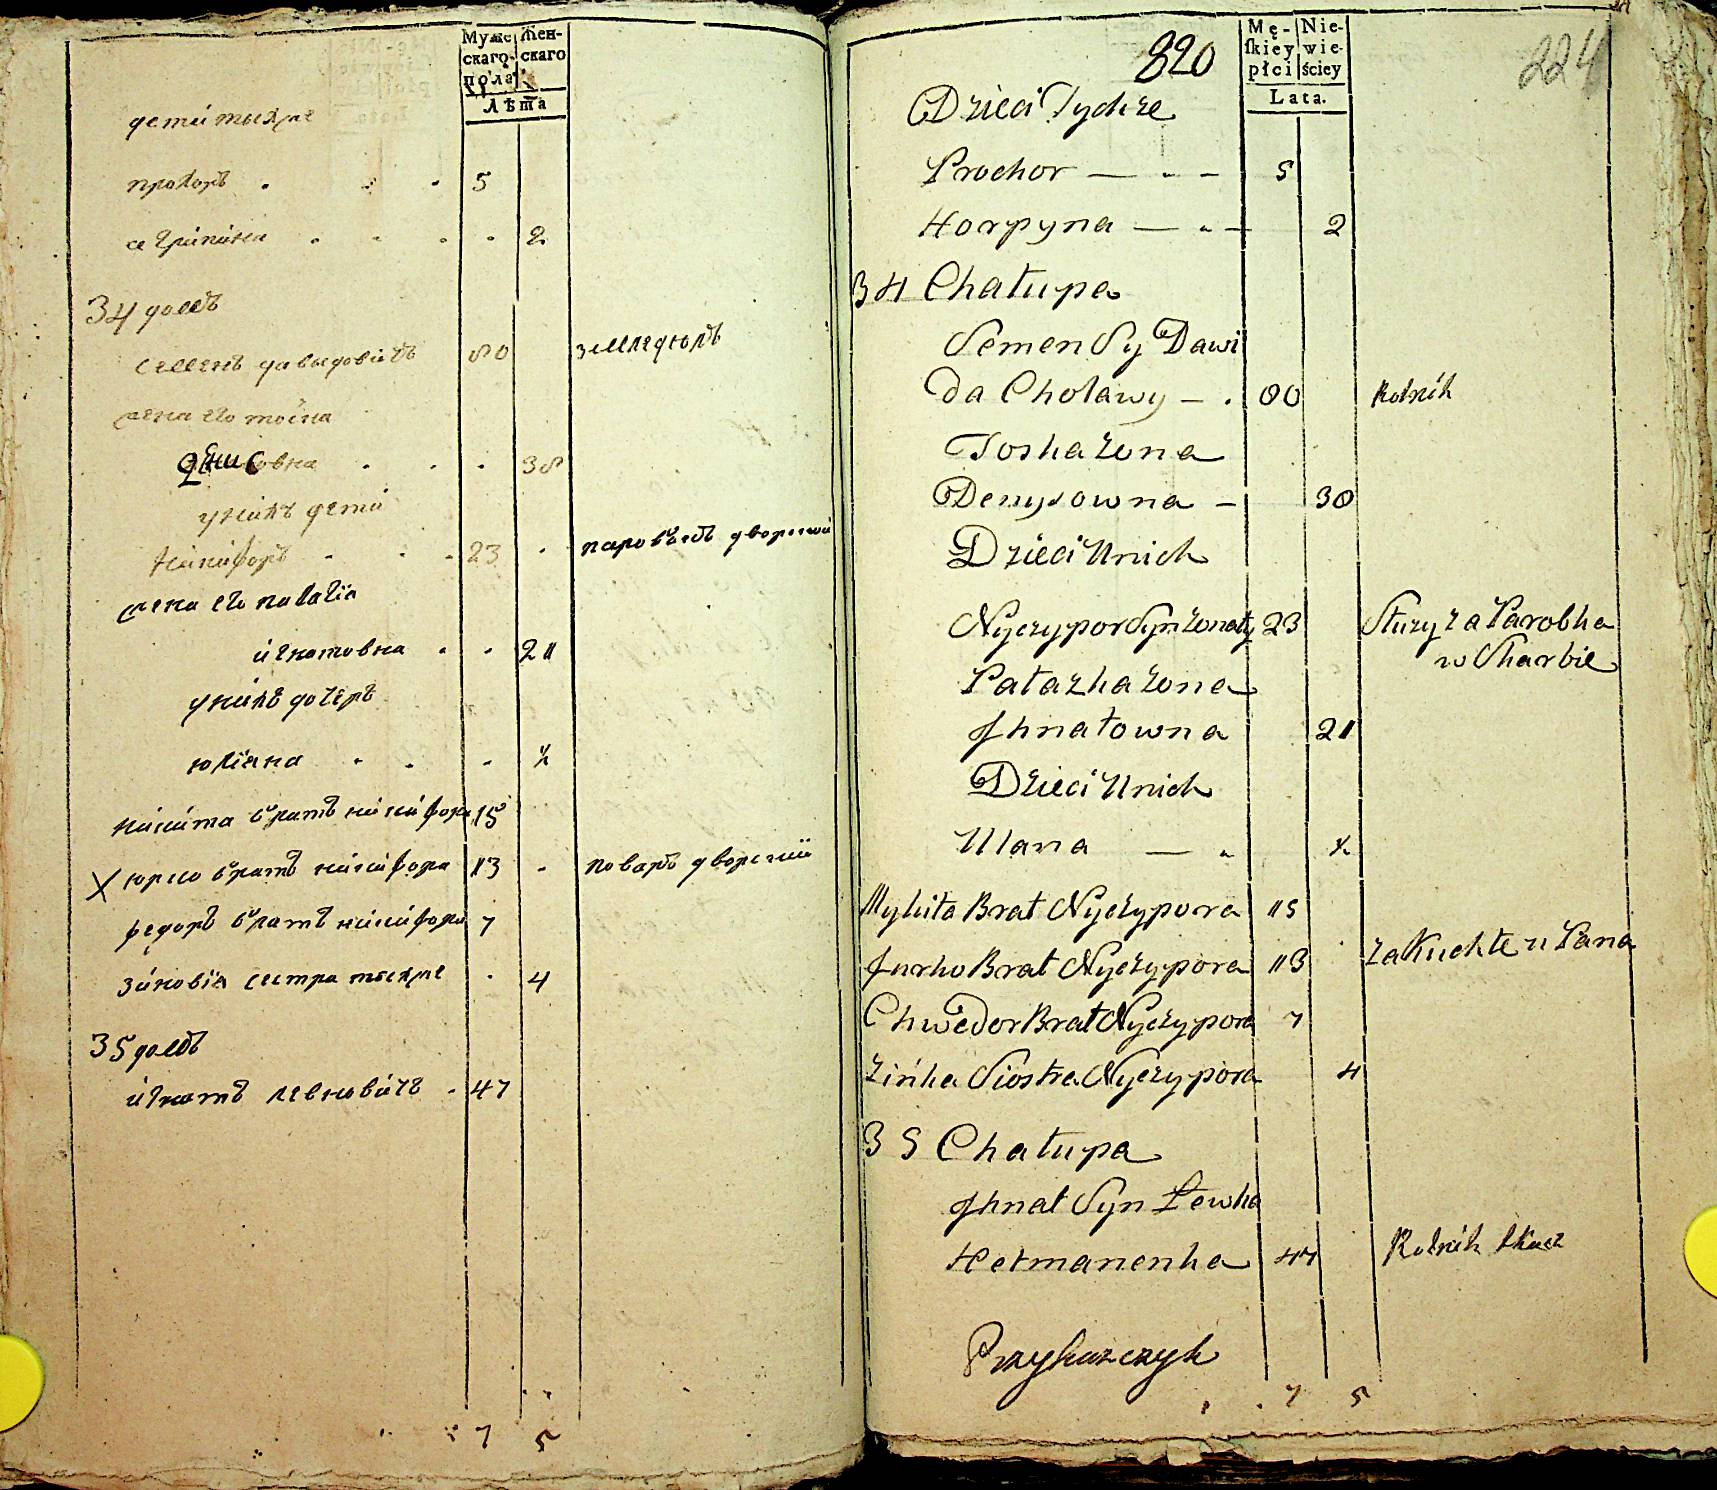 Мужескаго пола
Женскаго
Лѣта
дети тыхже
прохоръ 5
агрипина 2
34 домъ
семенъ давыдовичъ 80 земледѣлъ
жена его тоска
денисовна 38
у нихъ дети
никифоръ 23 паробокъ дворский
жена его палагія
игнатовна 21
у нихъ дочеръ
юліана ½
никита братъ никифора 15
X юрко братъ никифора 13 поваръ дворскій
федоръ братъ никифора 7
зиновія сестра тыхже 4
35 домъ
игнатъ левковичъ 47
7 5
820
224
Męſkiey płci
Niewieściey
Lata.
Dzieci Tychże
Prochor 5
Horpyna 2
34 Chałupa
Semen Sy Dawi
da Choławy 80 Rolnik
Toska żona
Denysowna 38
Dzieci Unich
Nyczypor Syn żonaty 23 Służy za Parobka
w Skarbie
Pałazka żona
Jhnatowna 21
Dzieci Unich
Ulana ½
Mykita Brat Nyczypora 15
Jurko Brat Nyczypora 13 za Kuchte u Pana
Chwedor Brat Nyczypora 7
Zińka Siostra Nyczypora 4
35 Chałupa
Jhnat Syn Lewka
Hetmanenka 47 Rolnik tkacz
7 5